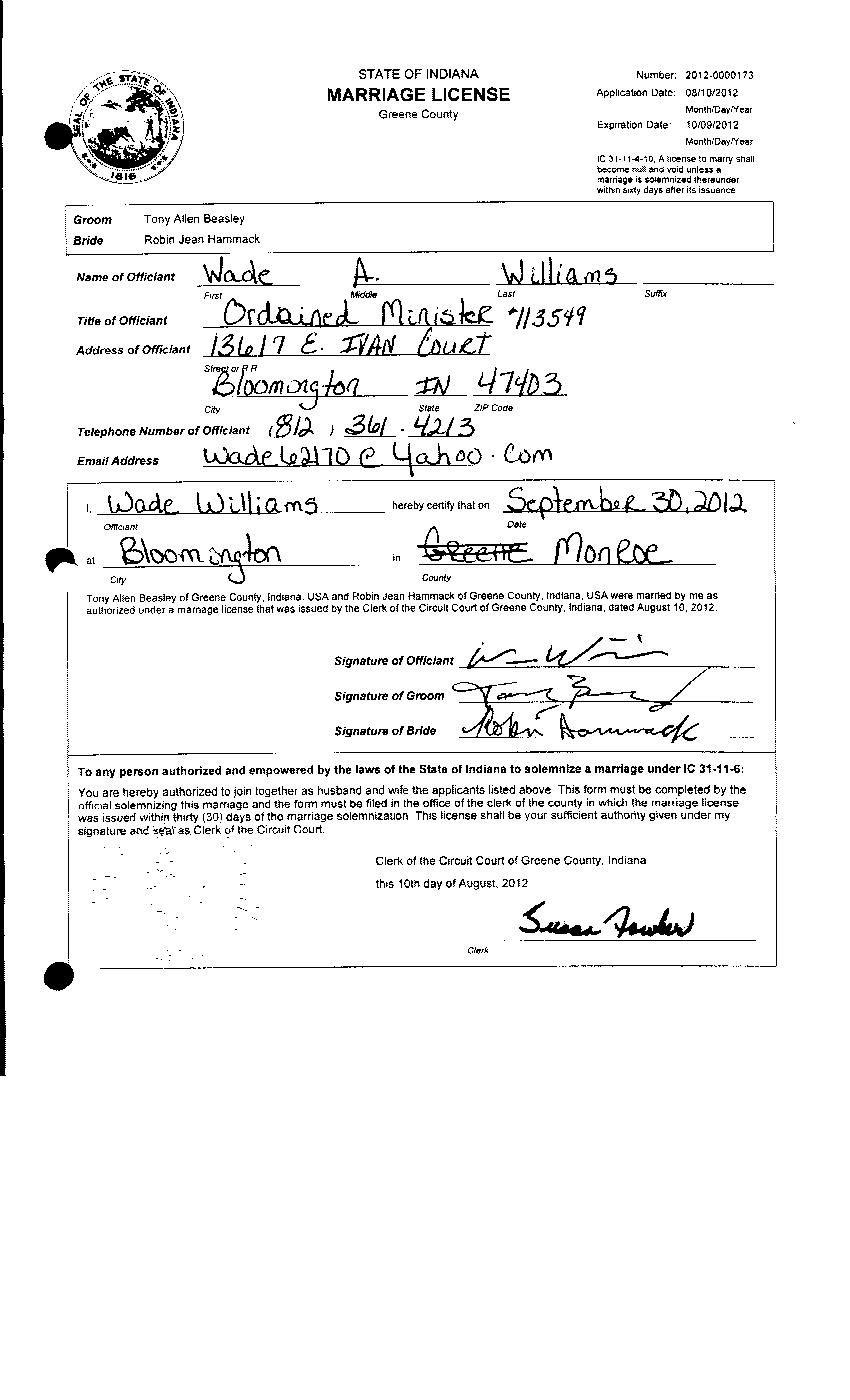 SEAL OF THE STATE OF INDIANA
1816
STATE OF INDIANA
MARRIAGE LICENSE
Greene County
Number: 2012-0000173
Application Date: 08/10/2012
Month/Day/Year
Expiration Date: 10/09/2012
Month/Day/Year
IC 31-11-4-10, A license to marry shall
become null and void unless a
marriage is solemnized thereunder
within sixty days after its issuance
Groom Tony Allen Beasley
Bride Robin Jean Hammack
Name of Officiant Wade A. Williams
First Middle Last Suffix
Title of Officiant Ordained Minister #113549
Address of Officiant 13617 E. IVAN Court
Street or R R
Bloomington IN 47403
City State ZIP Code
Telephone Number of Officiant (812) 361-4213
Email Address Wade62170@Yahoo.Com
I, Wade Williams hereby certify that on September 30, 2012
Officiant Date
at Bloomington in Greene Monroe
City County
Tony Allen Beasley of Greene County, Indiana, USA and Robin Jean Hammack of Greene County, Indiana, USA were married by me as
authorized under a marriage license that was issued by the Clerk of the Circuit Court of Greene County, Indiana, dated August 10, 2012.
Signature of Officiant
Signature of Groom
Signature of Bride Robin Hammack
To any person authorized and empowered by the laws of the State of Indiana to solemnize a marriage under IC 31-11-6:
You are hereby authorized to join together as husband and wife the applicants listed above. This form must be completed by the
official solemnizing this marriage and the form must be filed in the office of the clerk of the county in which the marriage license
was issued within thirty (30) days of the marriage solemnization. This license shall be your sufficient authority given under my
signature and seal as Clerk of the Circuit Court.
Clerk of the Circuit Court of Greene County, Indiana
this 10th day of August, 2012
Susan Fowler
Clerk